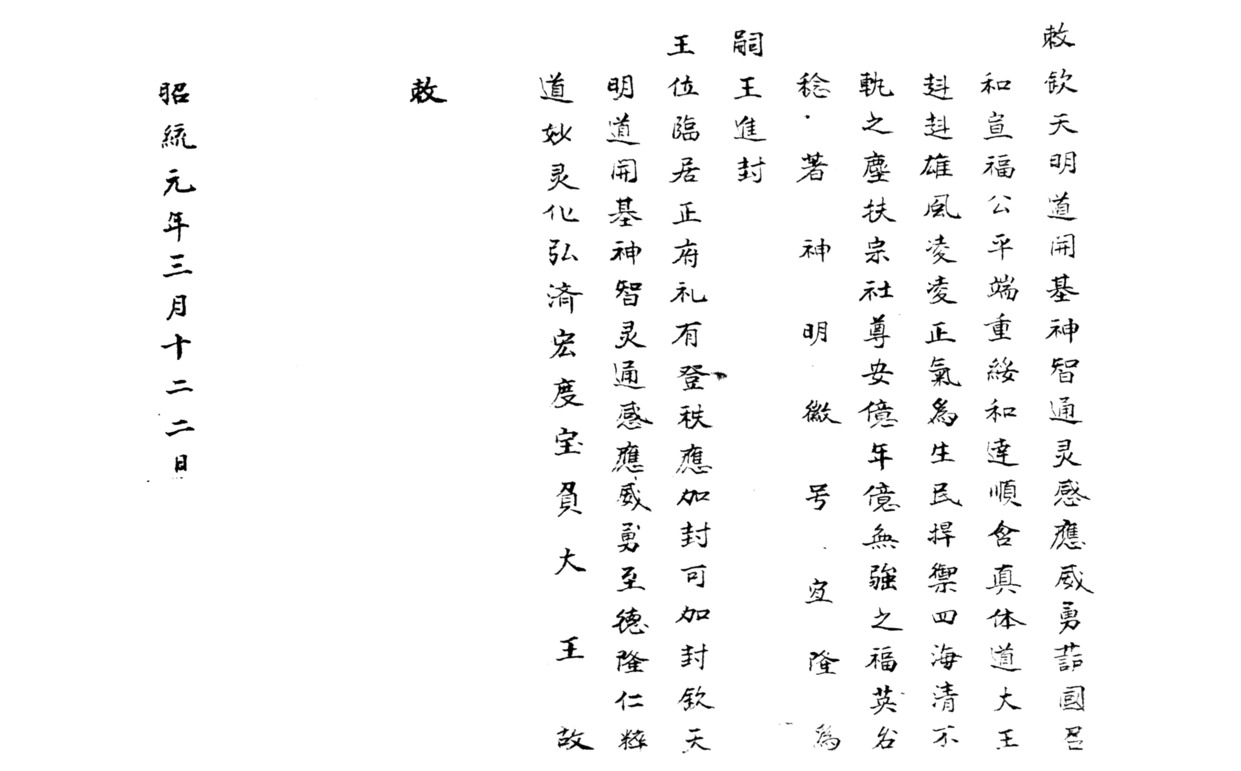 敕欽天明道開基神智通灵感應威勇諮國
和宣福公平端重綏和達順含真体道大王
赳赳雄風凌凌正氣為生民捍禦四海清不
軌之塵扶宗社尊安億年億無強之福英名
稔著神明徽号宜隆為
嗣王進封
王位臨居正府礼有登秩應加封可加封欽天
明道開基神智灵通感應威勇至德隆仁粹
道妙灵化弘済宏度宝負大王故
敕
昭統元年三月十二二日